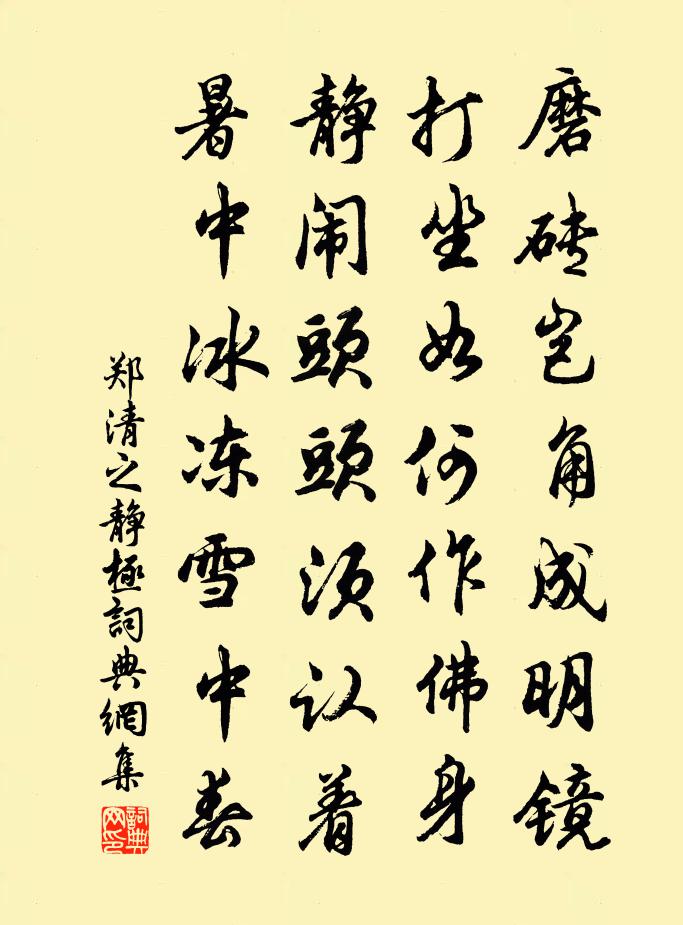 磨砖岂角成明镜
打坐如何作佛身
静闹頭頭须认着
暑中冰冻雪中春
郑清之静極詞典網集
詞典网印